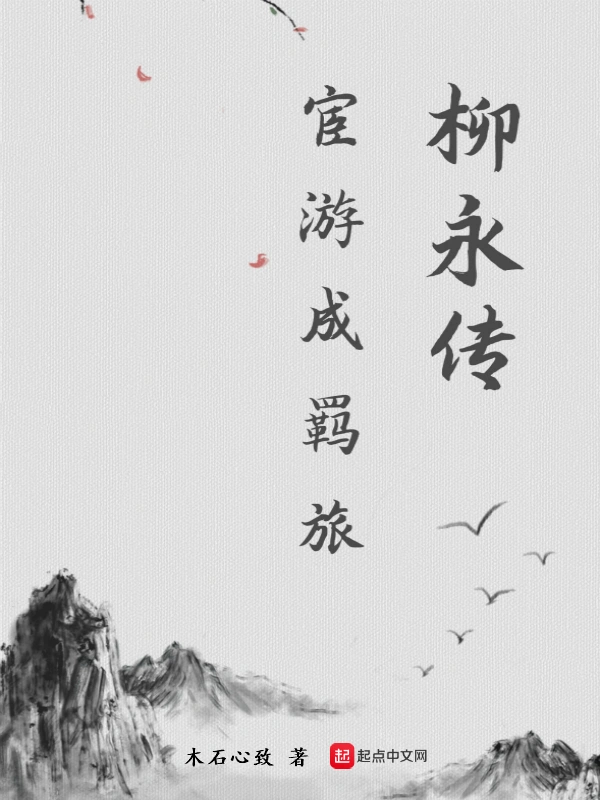 柳永传
宦游成羁旅
木石心致 著
起 起点中文网